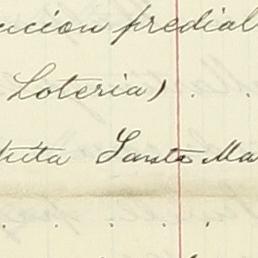 ucion predial
Loteria) . .
Santa Ma
. . . . .